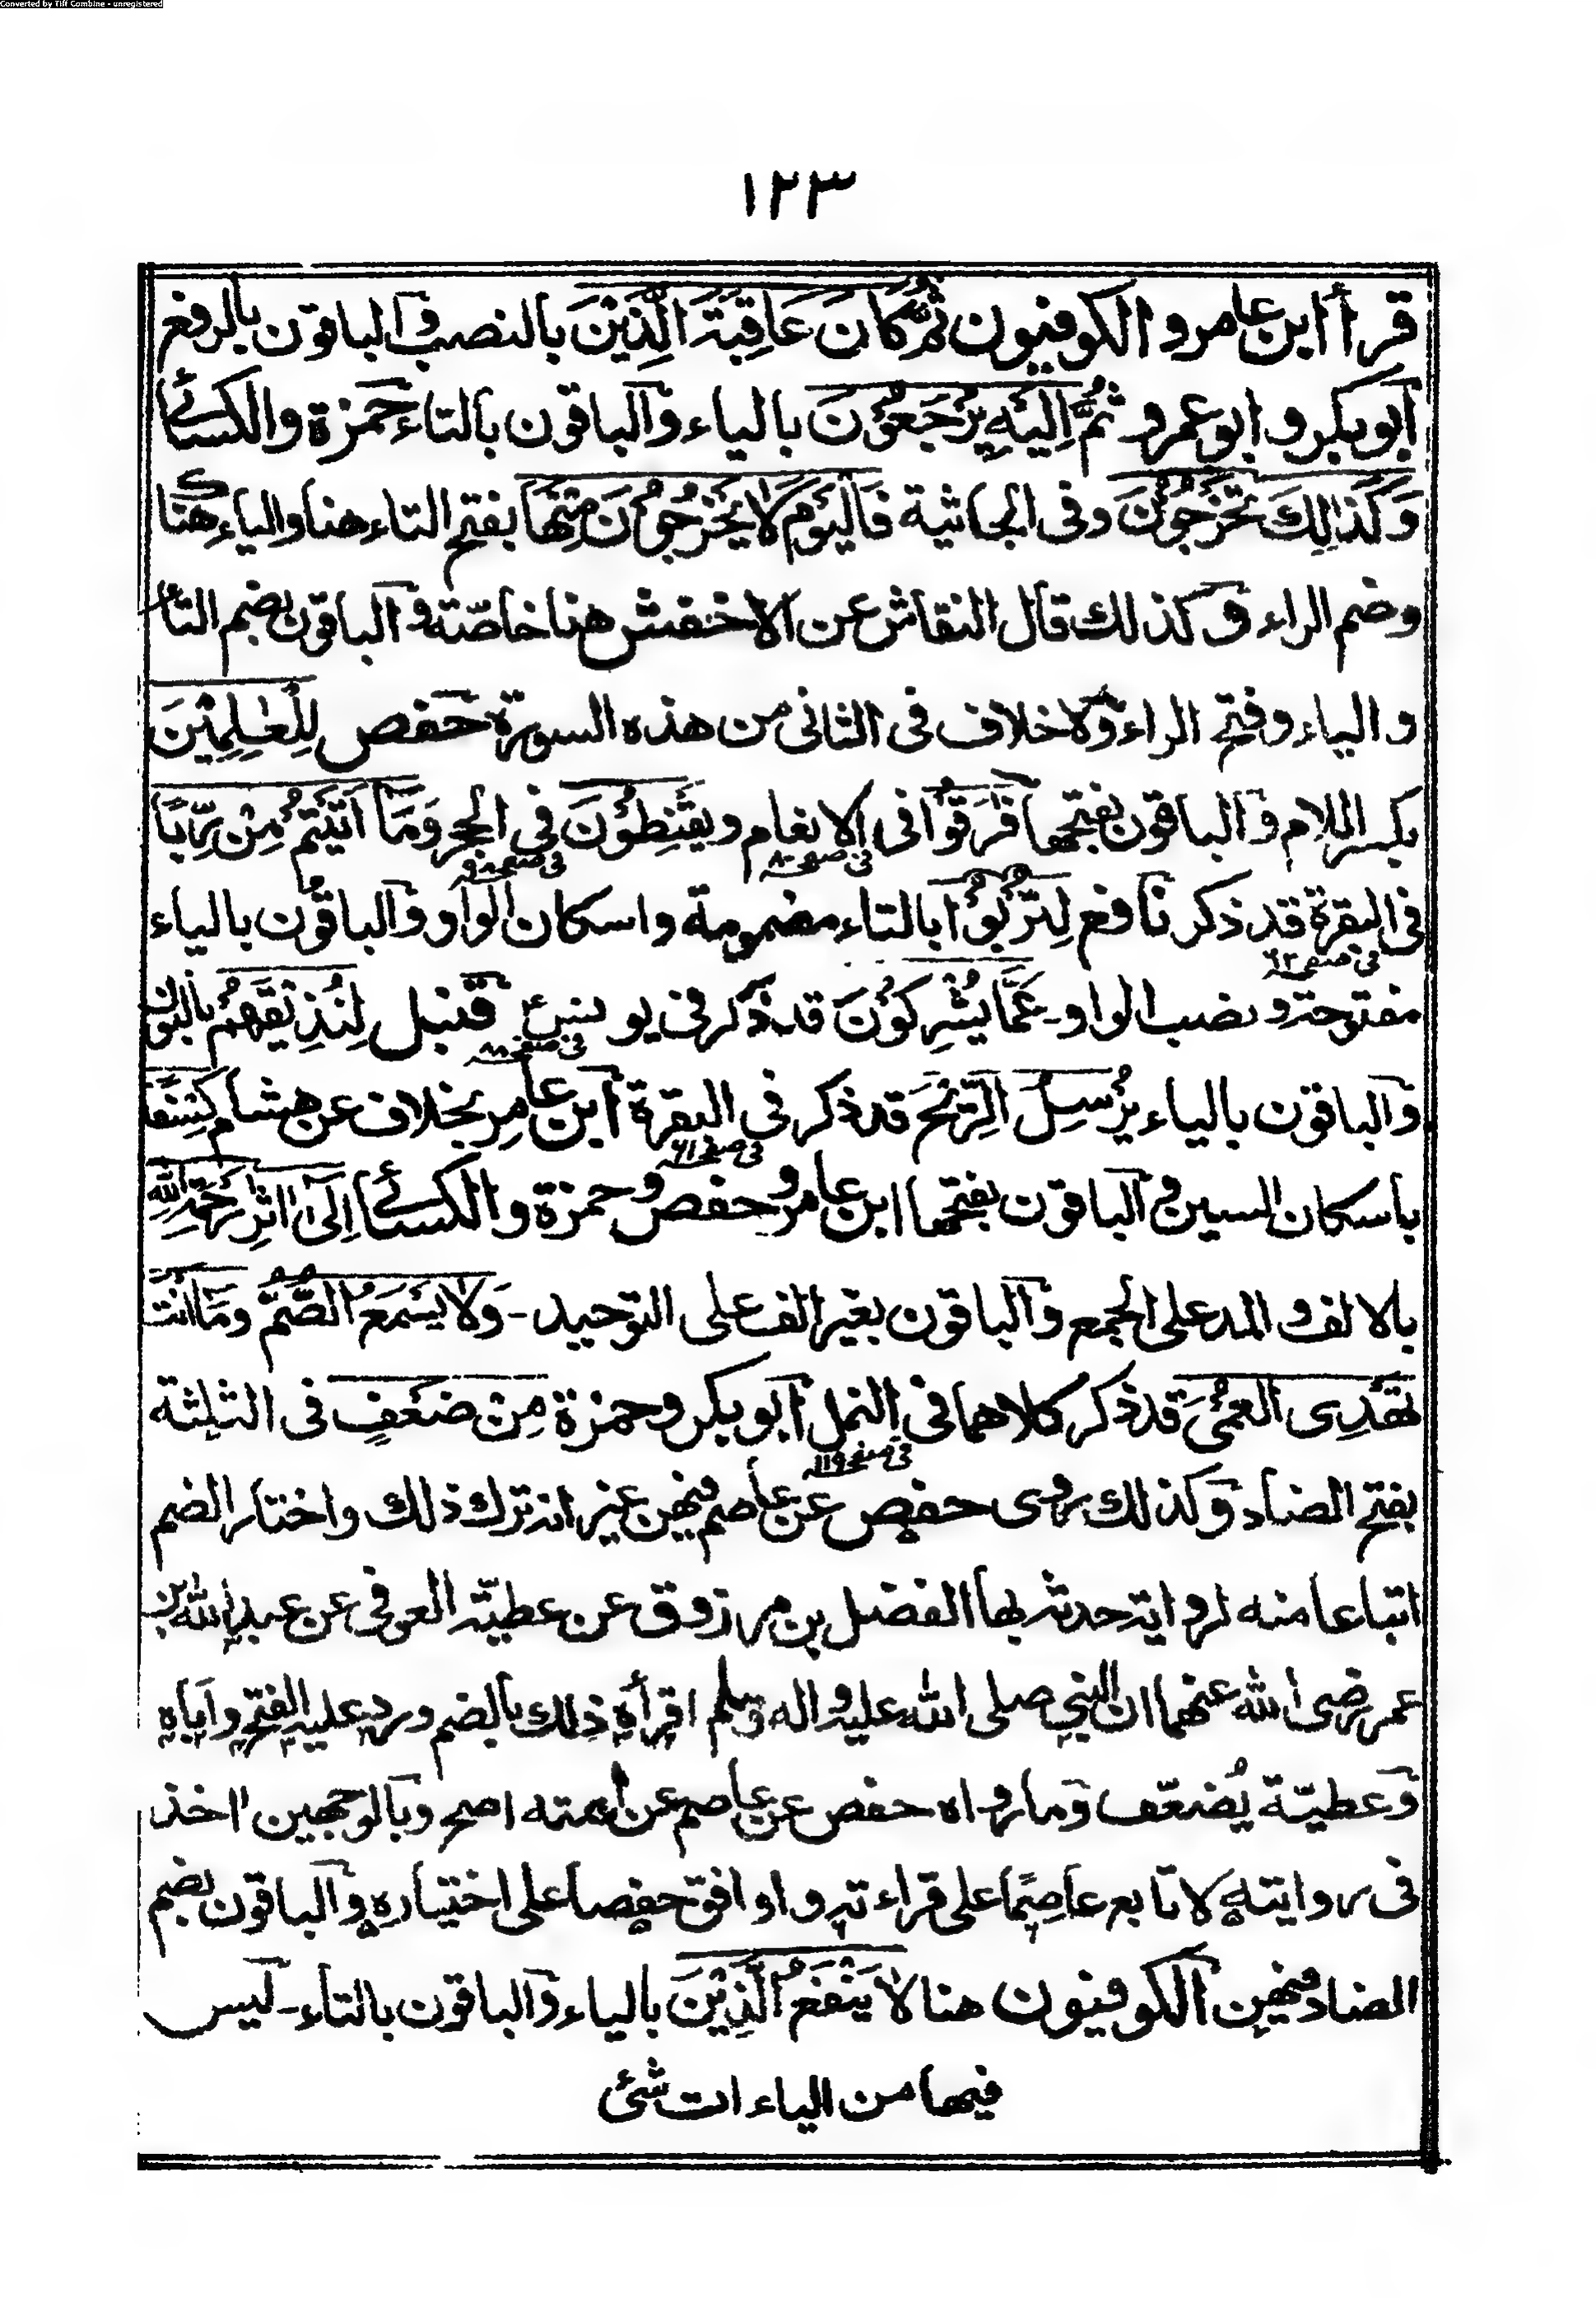 Converted by Tiff Combine - unregistered
١٢٣
قرأ ابن عامر و الكوفيون ثُمَّ كَانَ عَاقِبَةَ الَّذِيْنَ بالنصب و الباقون بالرفع
ابو بكر و ابو عمرو ثُمَّ اِلَيْهِ يُرْجَعُوْنَ بالياء و الباقون بالتاء حمزة و الكسائى
وَكَذٰلِكَ تَخْرُجُوْنَ و فى الجاثية فَالْيَوْمَ لَا يَخْرُجُوْنَ مِنْهَا بفتح التاء هنا و الياء هناك
و ضم الراء و كذلك قال النقاش عن الاخفش هنا خاصّة و الباقون بضم التاء
و الياء و فتح الراء و لا خلاف فى الثانى من هذه السورة حفص لِلْعٰلِمِيْنَ
بكسر اللام و الباقون بفتحها فَرَّقُوْا فى الانعام و يَقْنِطُوْنَ فى الحجر وَمَا اٰتَيْتُمْ مِنْ رِّبًا
فى صفحه ٨٠ فى صفحه ٩٨
فى البقرة قد ذكر نافع لِتُرْبُوْا بالتاء مضمومة و اسكان الواو و الباقون بالياء
فى صفحه ٦٢
مفتوحة و نصب الواو - عَمَّا يُشْرِكُوْنَ قد ذكر فى يونس قنبل لِنُذِيْقَهُمْ بالنون
فى صفحه ٨٨
و الباقون بالياء يُرْسِلُ الرِّيْحَ قد ذكر فى البقرة ابن عامر بخلاف عن هشام كِسْفًا
فى صفحه ٦١
باسكان السين و الباقون بفتحها ابن عامر و حفص و حمزة و الكسائى اِلٰى اٰثٰرِ رَحْمَةِ اللّٰهِ
بالالف و المد على الجمع و الباقون بغير الف على التوحيد - وَلَا يَسْمَعُ الصُّمُّ وَمَا اَنْتَ
تَهْدِى الْعُمْىَ قد ذكر كلاهما فى النمل ابو بكر و حمزة مِنْ ضَعْفٍ فى الثلثة
فى صفحه ١١٩
بفتح الضاد و كذلك روى حفص عن عاصم فيهن غير انه ترك ذلك و اختار الضم
اتباعا منه لرواية حدثه بها الفضل بن مرزوق عن عطيّة العوفى عن عبد الله بن
عمر رضى الله عنهما ان النبى صلى الله عليه و اله و سلم اقرأه ذلك بالضم و رد عليه الفتح و اباه
و عطيّة يُضعّف و ما رواه حفص عن عاصم عن ائمته اصح و بالوجهين اخذ
فى روايته لاتابع عاصمًا على قراءته و اوافق حفصا على اختياره و الباقون بضم
الضاد فيهن الكوفيون هنا لَا يَنْفَعُ الَّذِيْنَ بالياء و الباقون بالتاء - ليس
فيها من الياء ات شئ